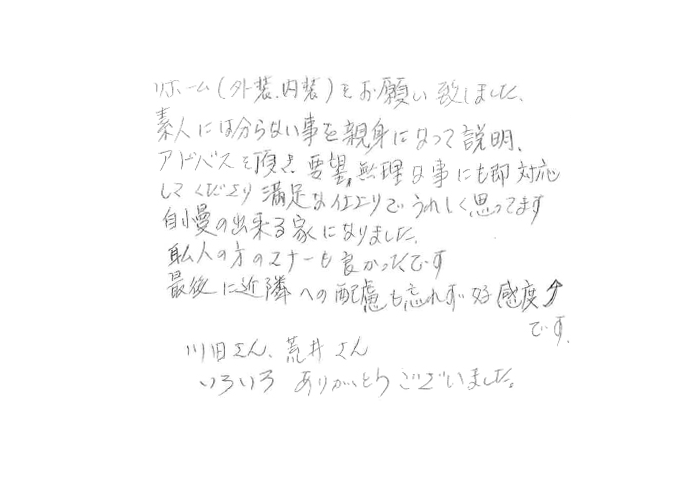 リホーム(外装、内装)をお願い致しました、
素人には分らない事を親身になって説明、
アドバスを頂き 要望、無理な事にも即対応
してくださり 満足な仕上りでうれしく思ってます
自慢の出来る家になりました。
職人の方のマナーも良かったです
最後に近隣への配慮も忘れず好感度↑
です。
川田さん、荒井さん
いろいろ ありがとうございました。